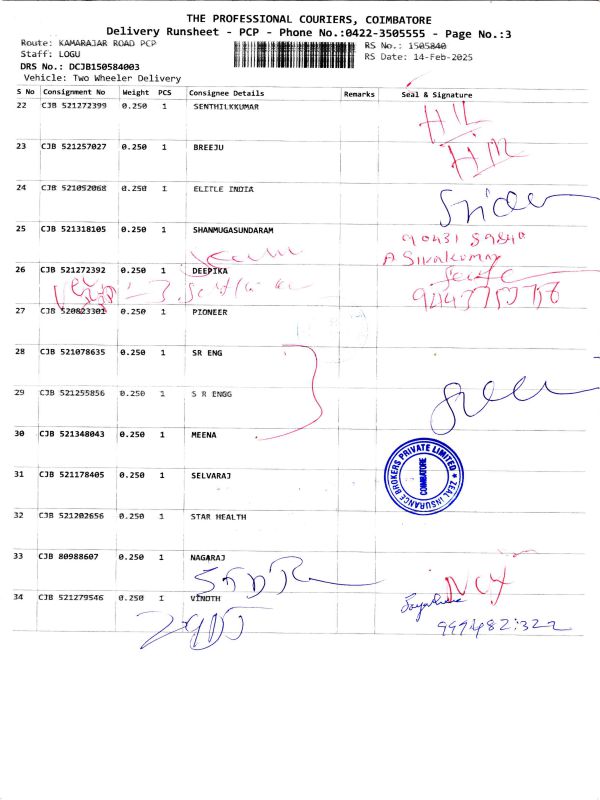 THE PROFESSIONAL COURIERS, COIMBATORE
Delivery Runsheet - PCP - Phone No.:0422-3505555 - Page No.:3
Route: KAMARAJAR ROAD PCP
RS No.: 1505840
Staff: LOGU
RS Date: 14-Feb-2025
DRS No.: DCJB150584003
Vehicle: Two Wheeler Delivery
S No Consignment No Weight PCS Consignee Details Remarks Seal & Signature
22 CJB 521272399 0.250 1 SENTHILKKUMAR
23 CJB 521257027 0.250 1 BREEJU
24 CJB 521052068 0.250 1 ELITLE INDIA
25 CJB 521318105 0.250 1 SHANMUGASUNDARAM
A Sivakumar
26 CJB 521272392 0.250 1 DEEPIKA
27 CJB 520823301 0.250 1 PIONEER
28 CJB 521078635 0.250 1 SR ENG
29 CJB 521255856 0.250 1 S R ENGG
30 CJB 521348043 0.250 1 MEENA
ZEAL INSURANCE BROKERS PRIVATE LIMITED
COIMBATORE
31 CJB 521178405 0.250 1 SELVARAJ
32 CJB 521202656 0.250 1 STAR HEALTH
33 CJB 80988607 0.250 1 NAGARAJ
34 CJB 521279546 0.250 1 VINOTH